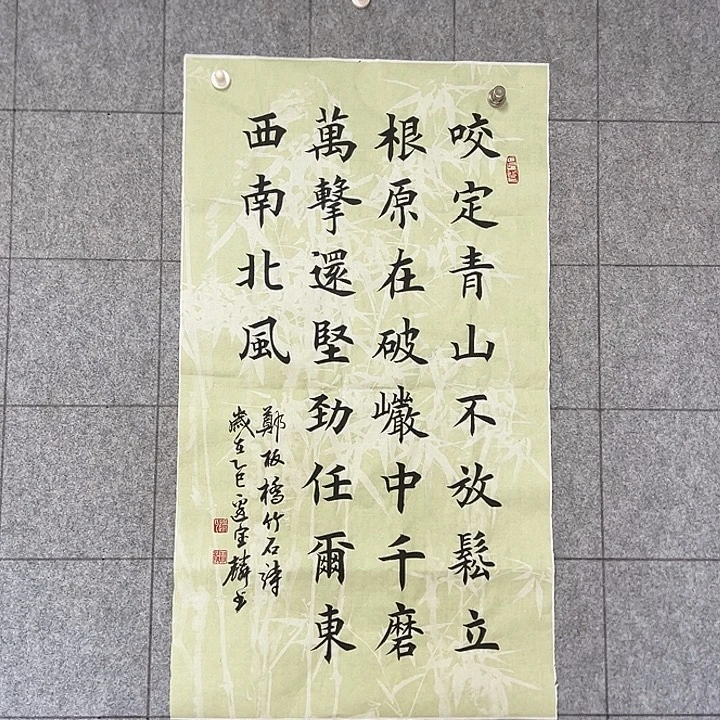 咬定青山不放鬆立
根原在破巖中千磨
萬擊還堅勁任爾東
西南北風
鄭板橋竹石詩
歲在乙巳邊宝麟书